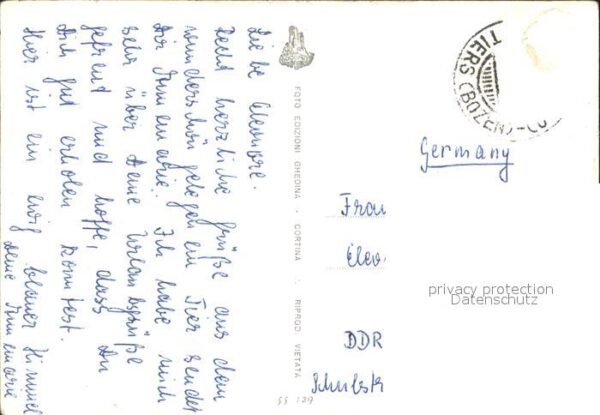 Liebe Eleonore.
Recht herzliche Grüße aus dem
wunderschön gelegenen Tiers sendet
Dir Annemarie. Ich habe mich
sehr über Deine Urlaubsgrüße
gefreut und hoffe, dass Du
Dich gut erholen konntest.
Hier ist ein ewig blauer Himmel
Deine Annemarie
FOTO EDIZIONI GHEDINA - CORTINA - RIPROD. VIETATA
SS 129
TIERS (BOZEN)
Germany
Frau
Eleo
DDR
privacy protection
Datenschutz